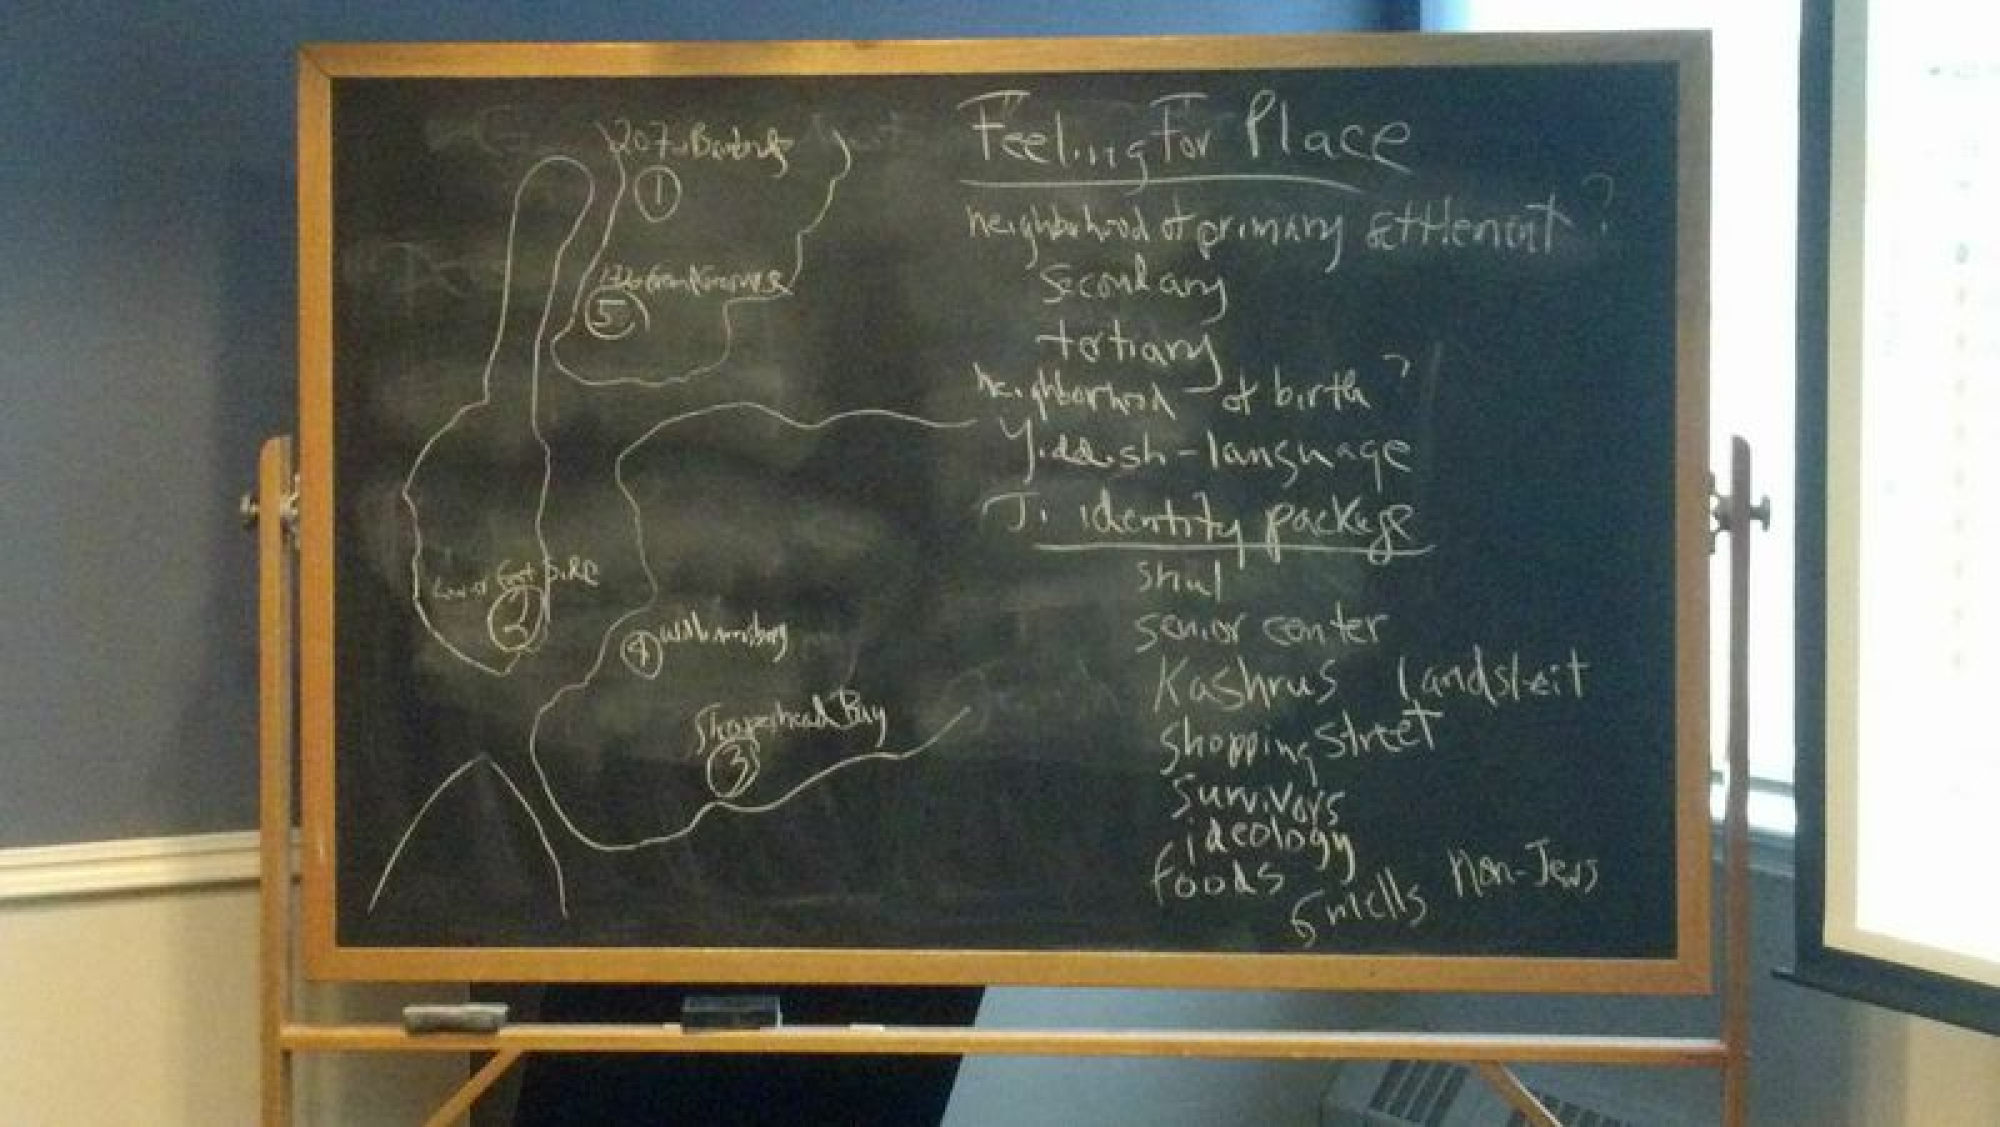 Feeling For Place
neighborhood of primary settlement ?
secondary
tertiary
neighborhood of birth ?
Yiddish-language
J. identity package
shul
senior center
Kashrus landsleit
shopping street
survivors
ideology
foods
smells Non-Jews
207
1
5
Lower East Side
2
4 Williamsburg
Sheapshead Bay
3